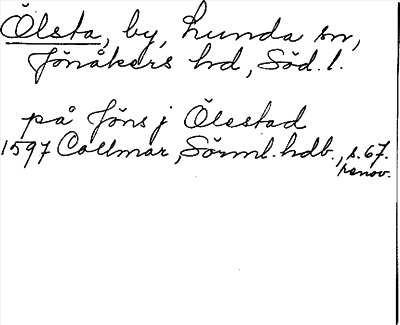 Ölsta, by, Lunda sn,
Jönåkers hd, Söd. l.
på Jöns j Ölestad
1597 Collmar, Sörml. hdb., s. 67.
renov.